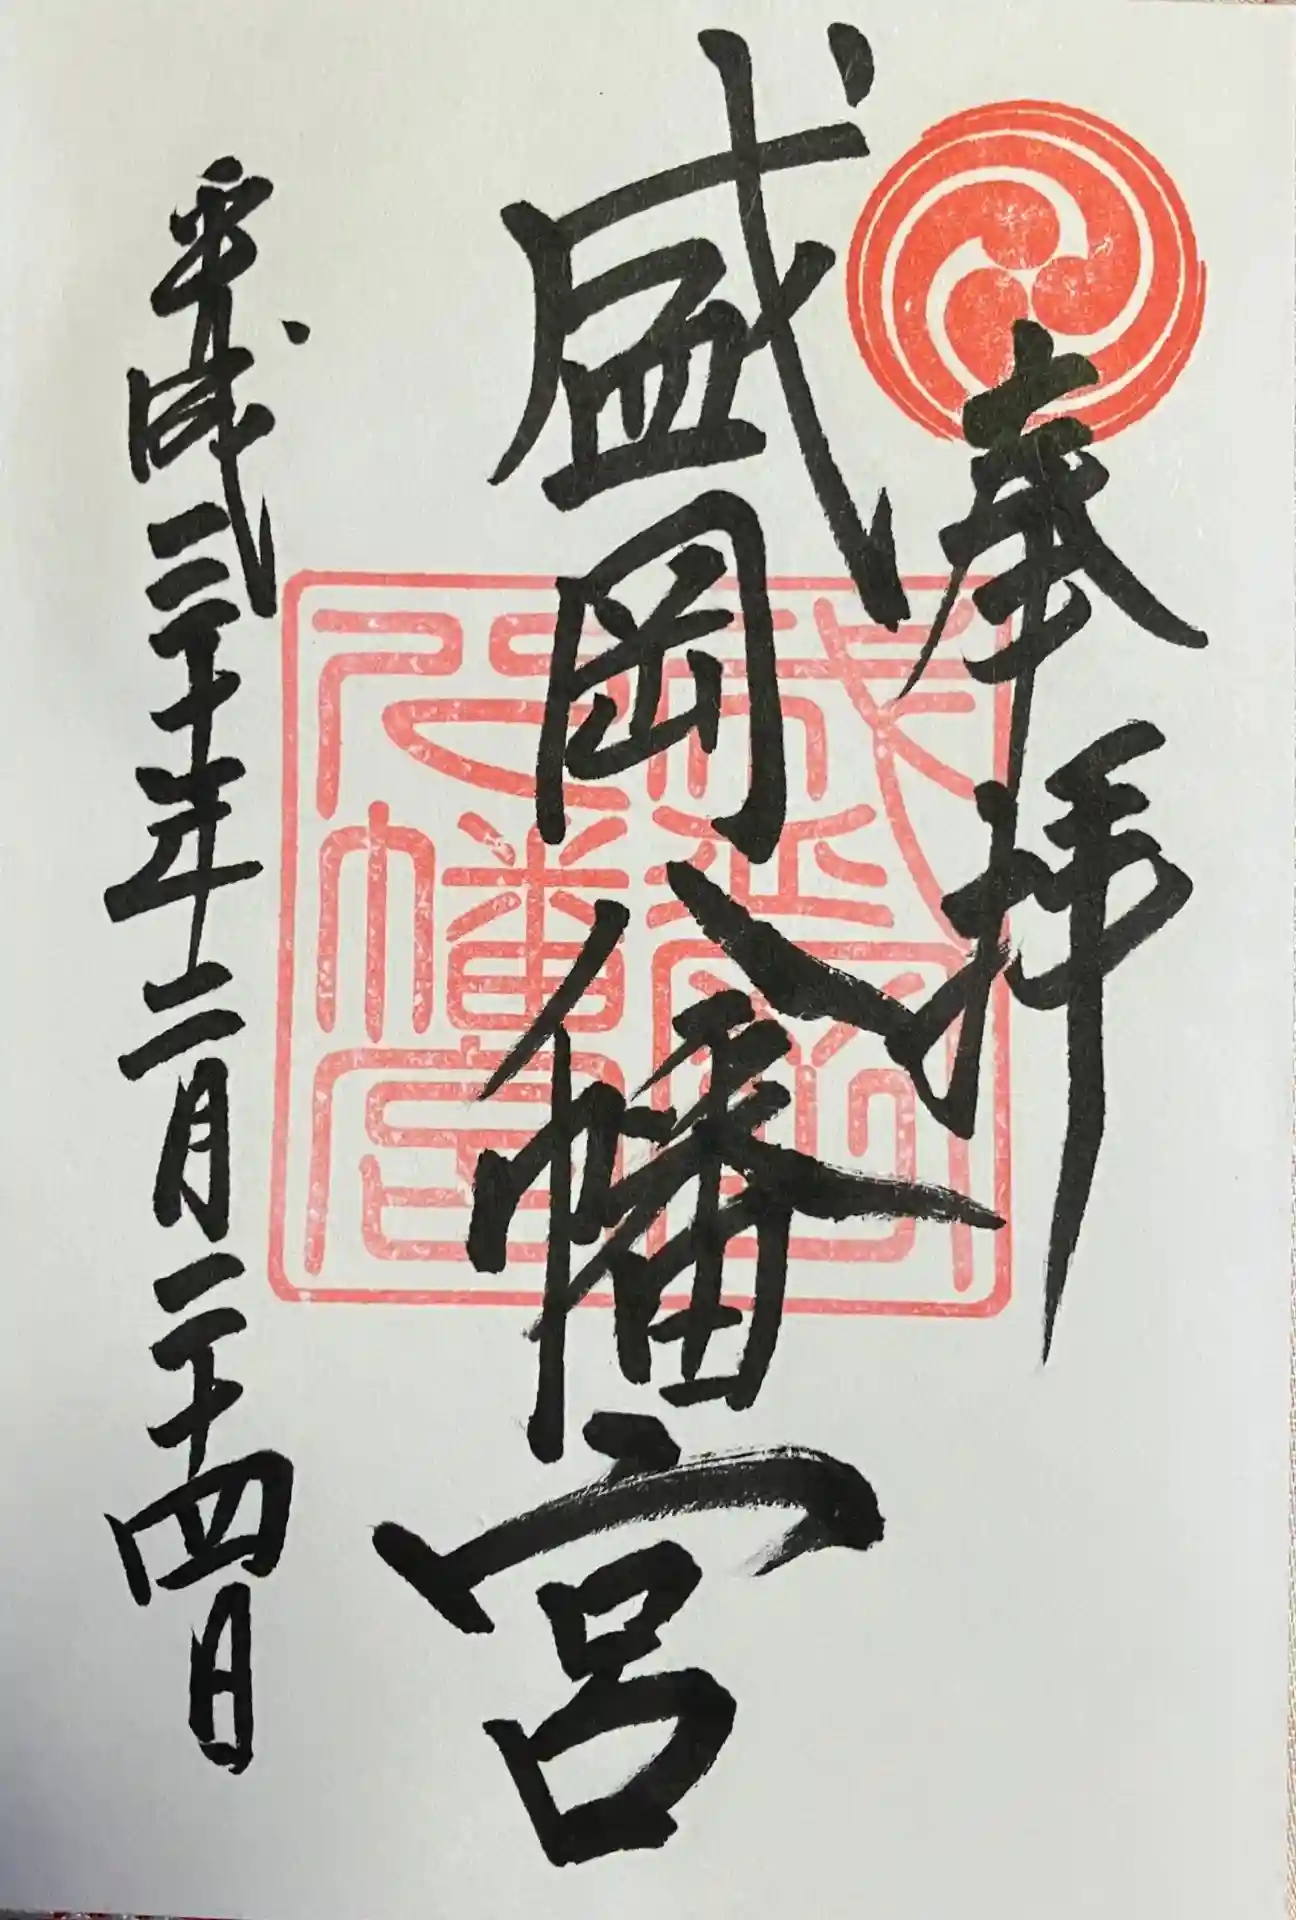 奉拝
盛岡八幡宮
平成三十年二月二十四日
盛岡八幡宮